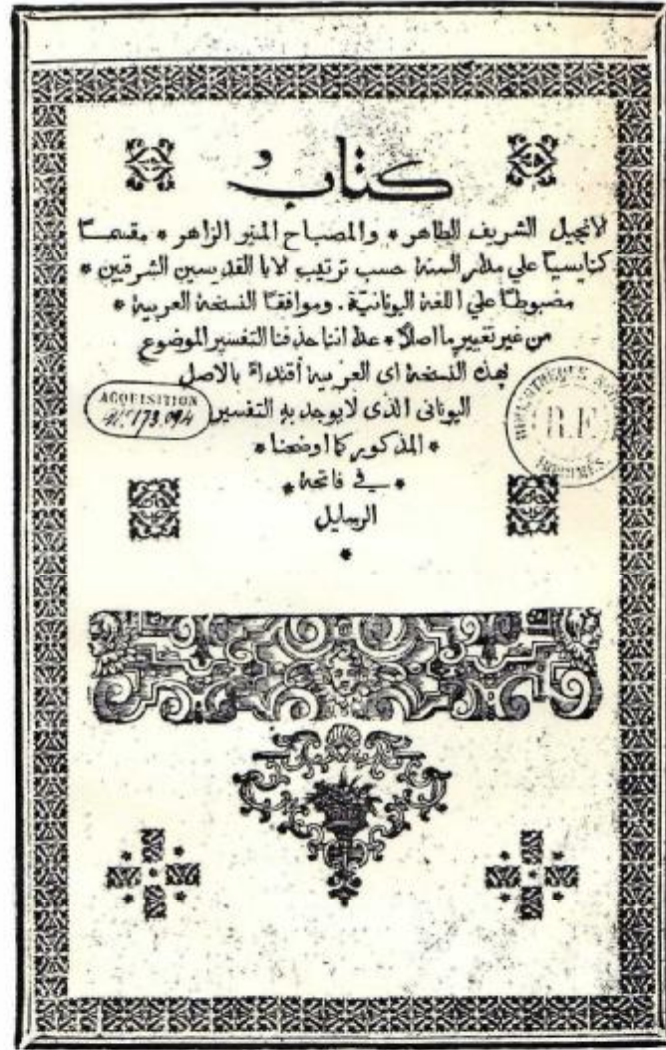 كتاب
لانجيل الشريف الطاهر * والمصباح المنير الزاهر * مقسمـــا
كنايسيا علي مدار السنة حسب ترتيب لابا القديسين الشرقيين *
مضبوطا علي اللغة اليونانية . وموافقا النسخة العربية *
من غير تغيير ما اصلا * عدا اننا حذفنا التفسير الموضوع
بهذه النسخة اي العربية أقتداء بالاصل
اليوناني الذي لايوجد به التفسير
* المذكور كما اوضحنا *
* في فاتحة *
الرسايل
*
ACQUISITION
No 173.094
R.F.